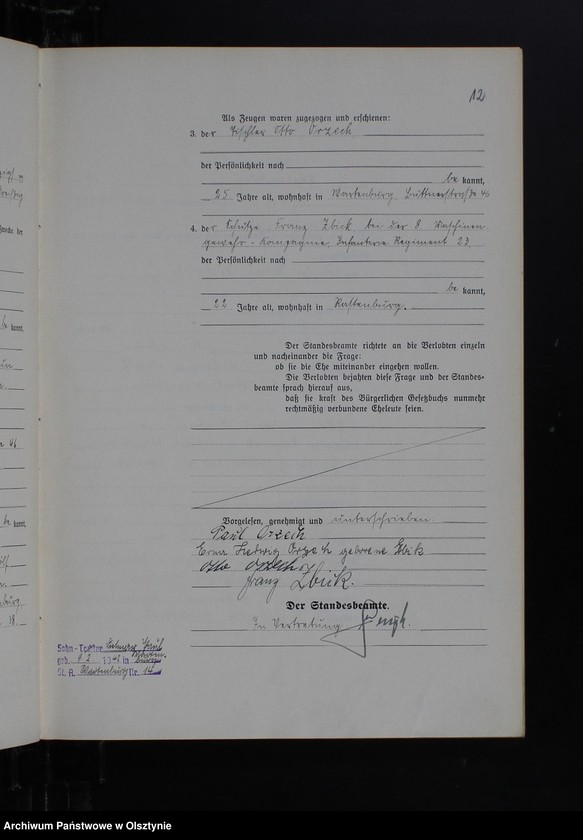 12
Als Zeugen waren zugezogen und erschienen:
3. der Tischler Otto Orzech
der Persönlichkeit nach
be kannt,
25 Jahre alt, wohnhaft in Wartenburg
4. der Schütze Franz Zbick, bei der 8. Maschinen
gewehr-Kompagnie, Infanterie Regiment 23,
der Persönlichkeit nach
be kannt,
22 Jahre alt, wohnhaft in Rastenburg.
Der Standesbeamte richtete an die Verlobten einzeln
und nacheinander die Frage:
ob sie die Ehe miteinander eingehen wollen.
Die Verlobten bejahten diese Frage und der Standes-
beamte sprach hierauf aus,
daß sie kraft des Bürgerlichen Gesetzbuchs nunmehr
rechtmäßig verbundene Eheleute seien.
Vorgelesen, genehmigt und unterschrieben.
Paul Orzech
Erna Hedwig Orzech geborene Zbick
Otto Orzech
Franz Zbick.
Der Standesbeamte.
In Vertretung
Sohn - Tochter
geb. in
St. A. Wartenburg Nr. 14
be kannt,
Archiwum Państwowe w Olsztynie